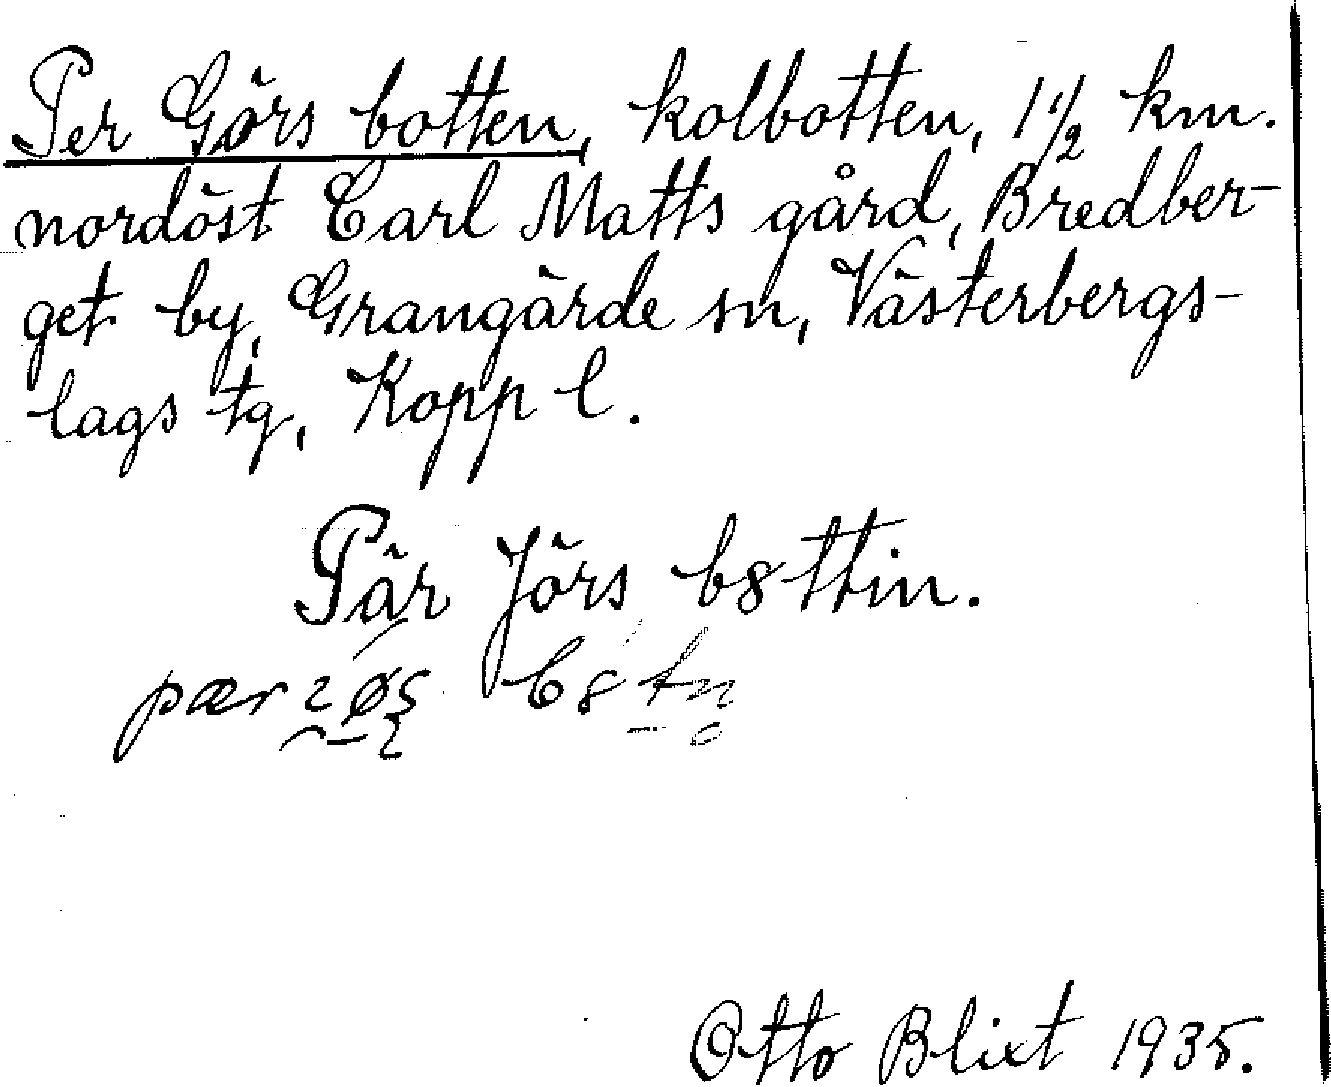 Per Görs botten, kolbotten, 1 1/2 km.
nordöst Carl Matts gård, Bredber-
get by, Grangärde sn, Västerbergs-
lags tg, Kopp l.
Pär Jörs b8ttin.
pær
Otto Blixt 1935.